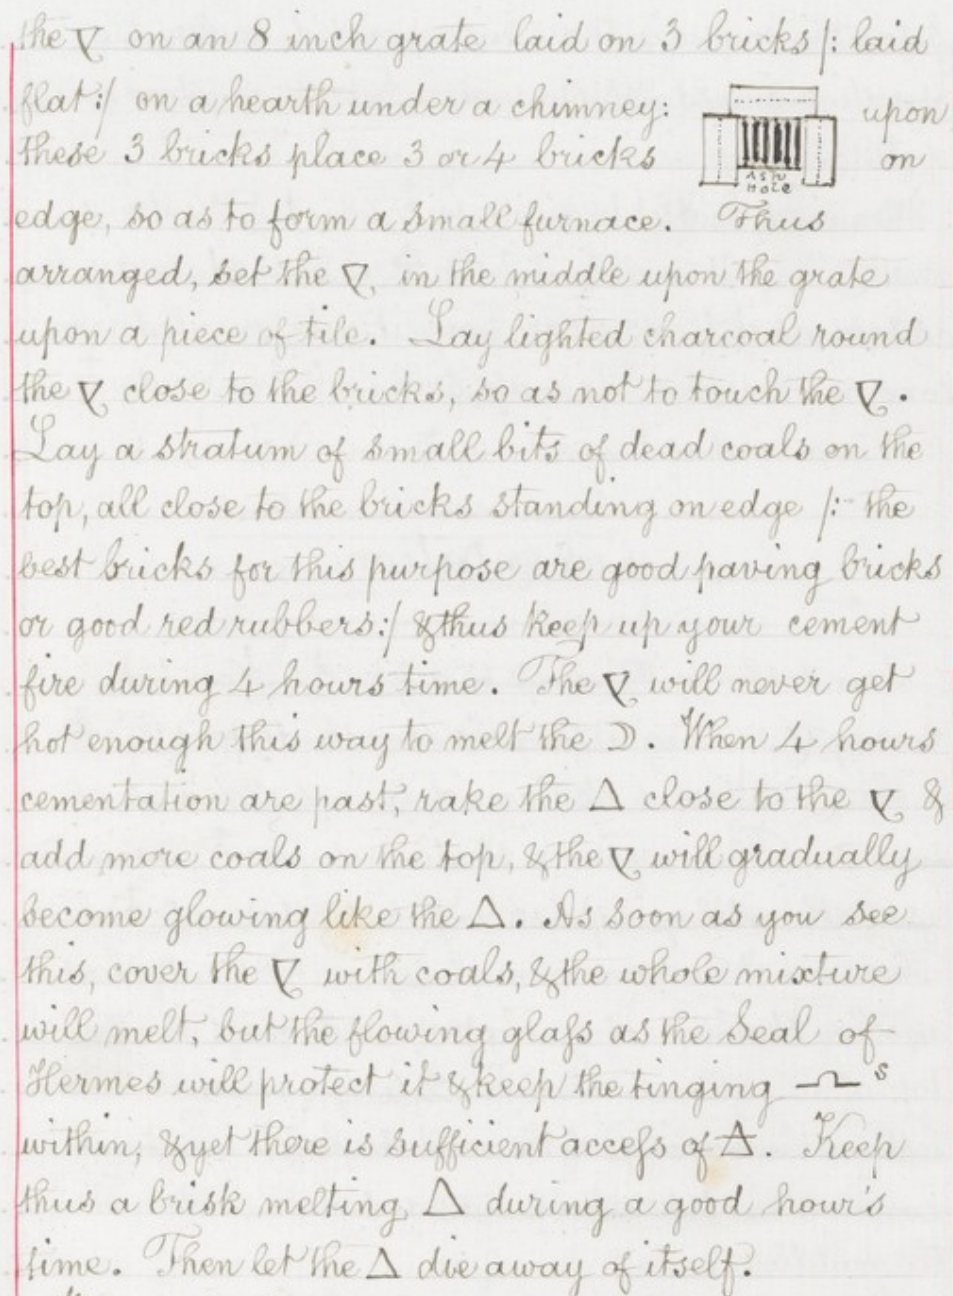 the 🜄 on an 8 inch grate laid on 3 bricks /: laid
flat :/ on a hearth under a chimney: upon
these 3 bricks place 3 or 4 bricks on
ASH
HOLE
edge, so as to form a small furnace. Thus
arranged, set the 🜄, in the middle upon the grate
upon a piece of tile. Lay lighted charcoal round
the 🜄 close to the bricks, so as not to touch the 🜄.
Lay a stratum of small bits of dead coals on the
top, all close to the bricks standing on edge /: the
best bricks for this purpose are good paving bricks
or good red rubbers :/ & thus keep up your cement
fire during 4 hours time. The 🜄 will never get
hot enough this way to melt the ☽. When 4 hours
cementation are past, rake the △ close to the 🜄 &
add more coals on the top, & the 🜄 will gradually
become glowing like the △. As soon as you see
this, cover the 🜄 with coals, & the whole mixture
will melt, but the flowing glaſs as the Seal of
Hermes will protect it & keep the tinging ♎s
within, & yet there is sufficient acceſs of 🜁. Keep
thus a brisk melting △ during a good hour's
time. Then let the △ die away of itself.